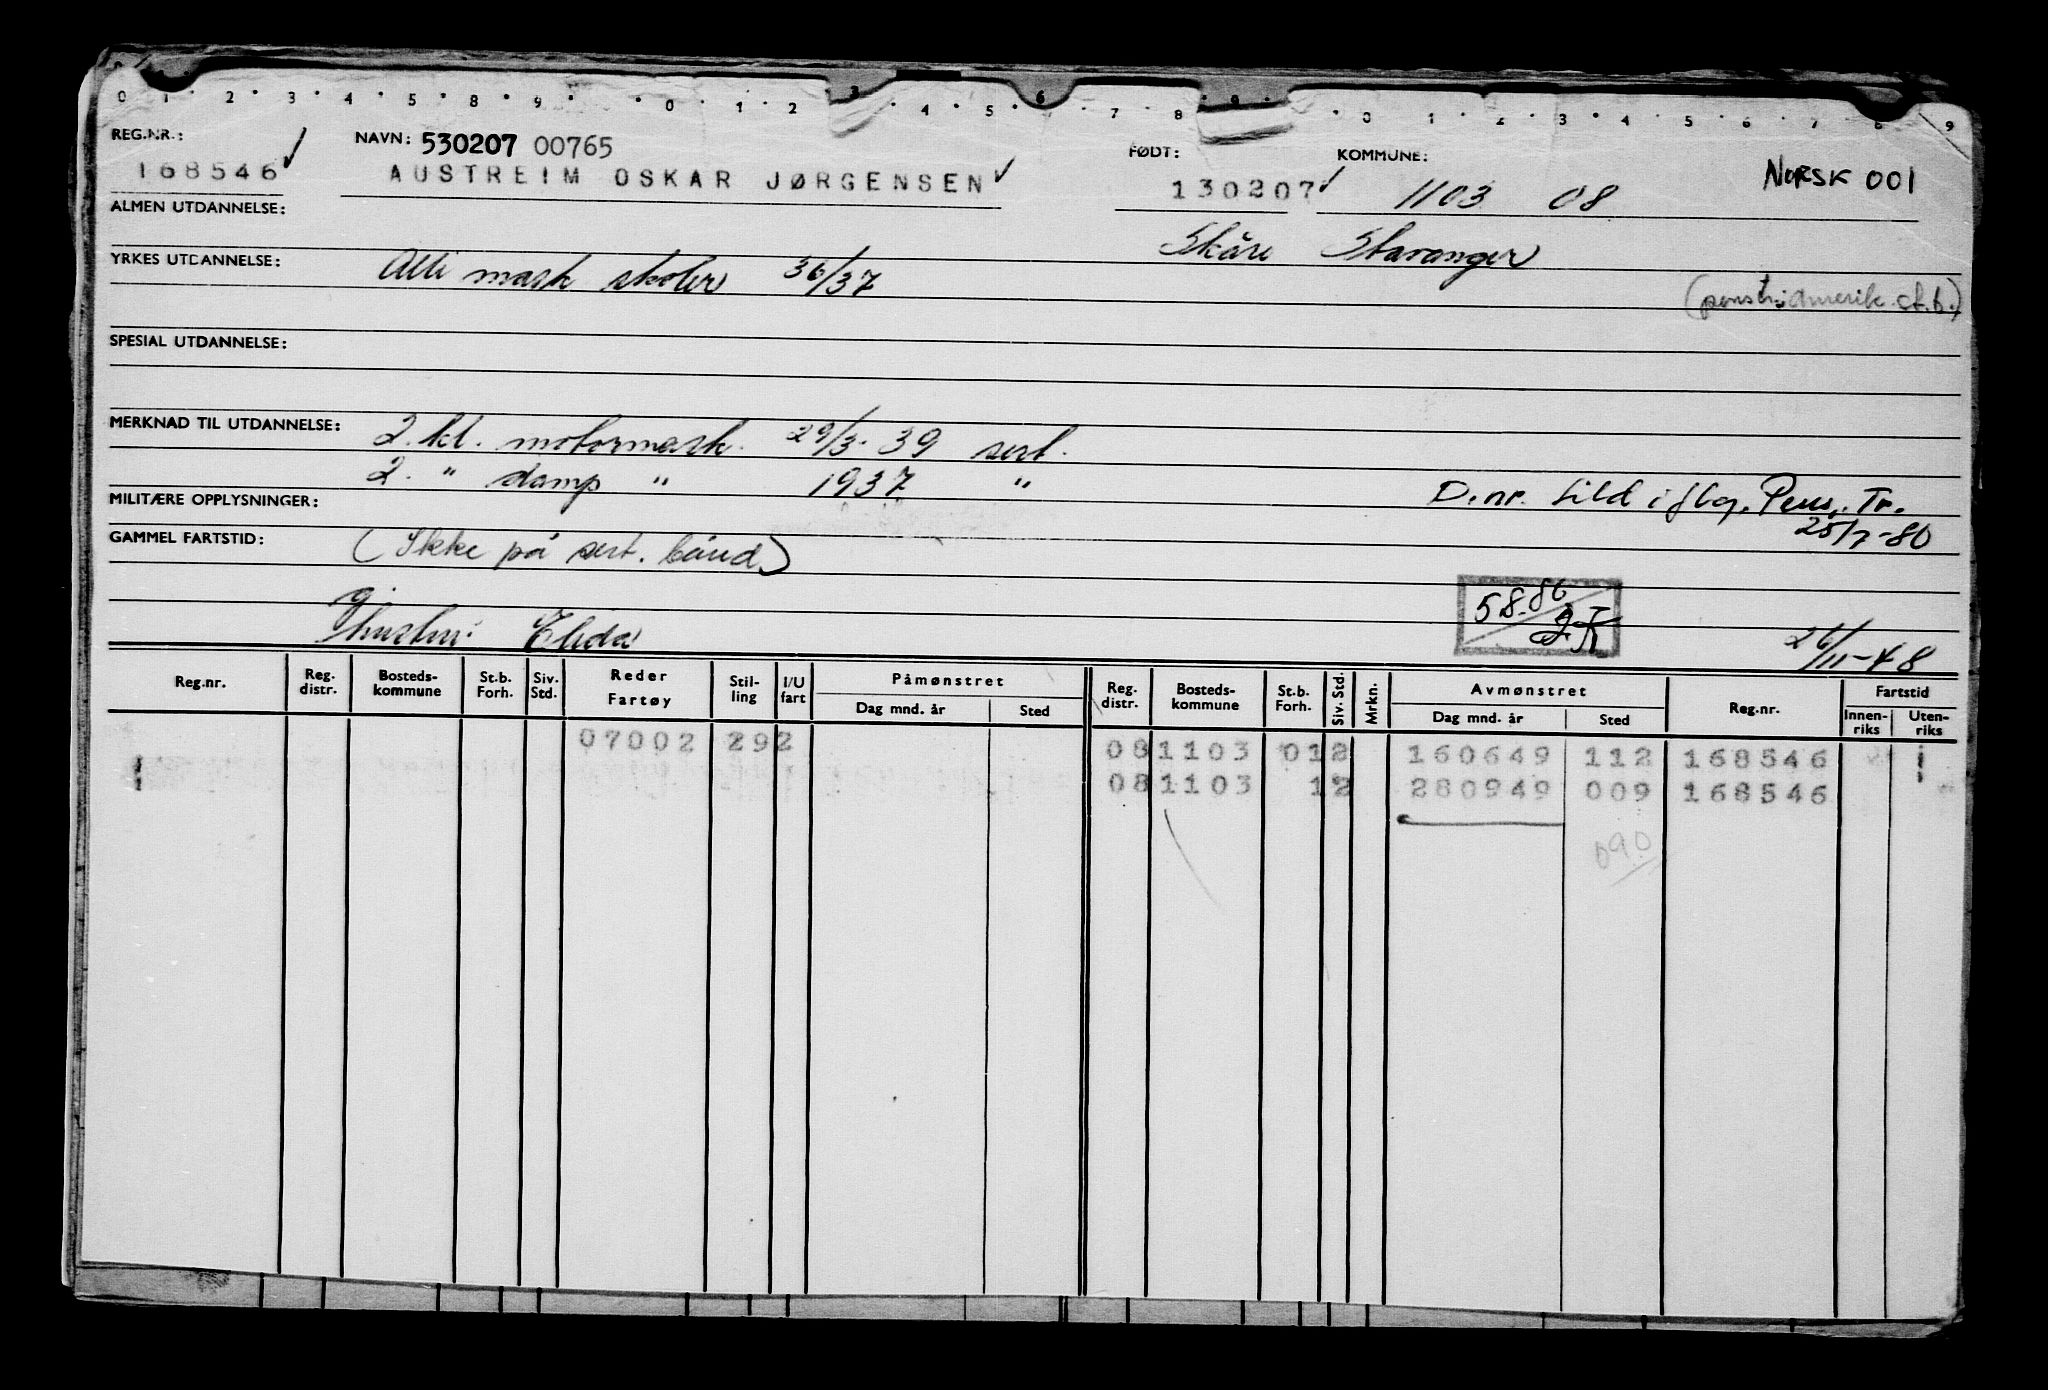 0 1 2 3 4 5 8 9 0 1 2 3 4 5 6 7 8 9 0 1 2 3 4 5 6 7 8 9
REG.NR.: NAVN: 530207 00765 FØDT: KOMMUNE:
168546 AUSTREIM OSKAR JØRGENSEN 130207 1103 08 NORSK 001
ALMEN UTDANNELSE:
Skåre Stavanger
YRKES UTDANNELSE: Alti mask skoler 36/37
SPESIAL UTDANNELSE:
MERKNAD TIL UTDANNELSE: 2. kl. motormask. 29/3-39 sert.
2. " damp " 1937 "
MILITÆRE OPPLYSNINGER: D.nr. tild i flg. Pens. Tr.
25/7-80
GAMMEL FARTSTID: (Ikke på sert. bånd)
58-86
Hustru: Elida 26/11-48
Reg.nr. Reg. distr. Bosteds-kommune St.b. Forh. Siv. Std. Reder Fartøy Stil-ling I/U fart Påmønstret Dag mnd. år Sted Reg. distr. Bosteds-kommune St.b. Forh. Siv. Std. Mrkn. Avmønstret Dag mnd. år Sted Reg.nr. Fartstid Innen-riks Uten-riks
07002 292 081103 012 160649 112 168546
081103 12 280949 009 168546
090